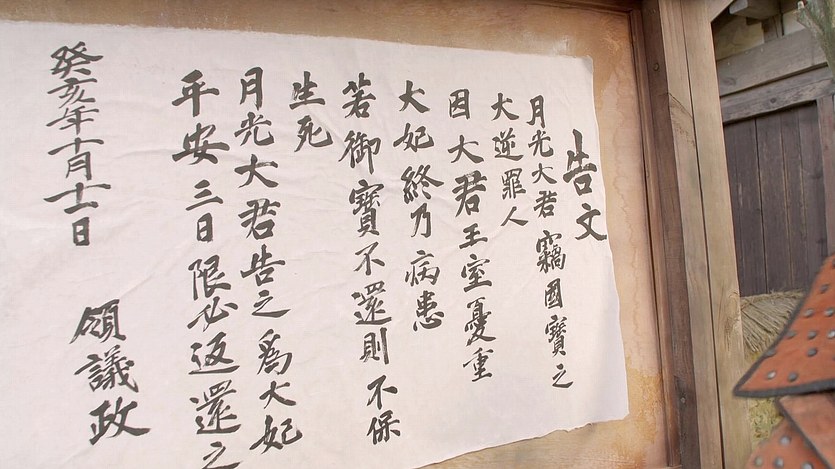 告文
月光大君 竊國寶之
大逆罪人
因大君王室憂重
大妃終乃病患
若御寶不還則不保
生死
月光大君告之為大妃
平安三日限必返還之
癸亥年十月十一日
領議政